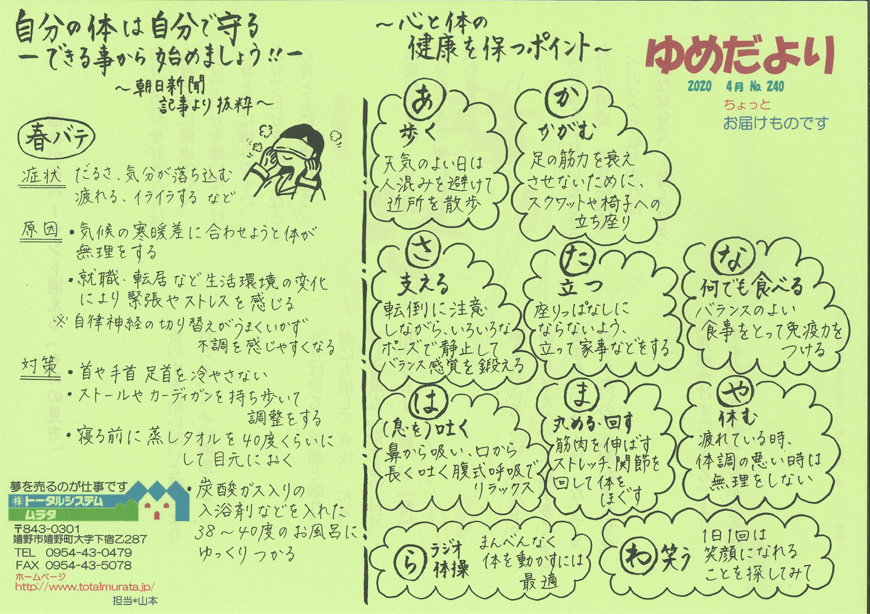 自分の体は自分で守る
ーできる事から始めましょう!!ー
～朝日新聞
記事より抜粋～
春バテ
症状 だるさ、気分が落ち込む
疲れる、イライラする など
原因 ・気候の寒暖差に合わせようと体が
無理をする
・就職・転居など生活環境の変化
により緊張やストレスを感じる
※自律神経の切り替えがうまくいかず
不調を感じやすくなる
対策 ・首や手首 足首を冷やさない
・ストールやカーディガンを持ち歩いて
調整をする
・寝る前に蒸しタオルを40度くらいに
して目元におく
・炭酸ガス入りの
入浴剤などを入れた
38～40度のお風呂に
ゆっくりつかる
夢を売るのが仕事です
(株)トータルシステム
ムラタ
〒843-0301
嬉野市嬉野町大字下宿乙287
TEL 0954-43-0479
FAX 0954-43-5078
ホームページ
http://www.totalmurata.jp/
担当*山本
～心と体の
健康を保つポイント～
ゆめだより
2020 4月 No. 240
ちょっと
お届けものです
あ
歩く
天気のよい日は
人混みを避けて
近所を散歩
か
かがむ
足の筋力を衰え
させないために、
スクワットや椅子への
立ち座り
さ
支える
転倒に注意
しながら、いろいろな
ポーズで静止して
バランス感覚を鍛える
た
立つ
座りっぱなしに
ならないよう、
立って家事などをする
な
何でも食べる
バランスのよい
食事をとって免疫力を
つける
は
(息を)吐く
鼻から吸い、口から
長く吐く腹式呼吸で
リラックス
ま
丸める・回す
筋肉を伸ばす
ストレッチ、関節を
回して体を
ほぐす
や
休む
疲れている時、
体調の悪い時は
無理をしない
ら
ラジオ
体操
まんべんなく
体を動かすには
最適
わ
笑う
1日1回は
笑顔になれる
ことを探してみて